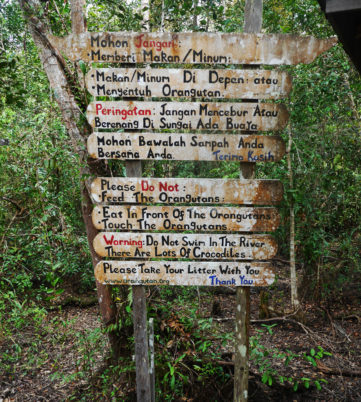 Mohon Jangan:
• Memberi Makan/Minum:
• Makan/Minum Di Depan: atau
Menyentuh Orangutan.
Peringatan: Jangan Mencebur Atau
Berenang Di Sungai Ada Buaya
Mohon Bawalah Sampah Anda
Bersama Anda. Terima Kasih
Please Do Not:
• Feed The Orangutans.
• Eat In Front Of The Orangutans
Touch The Orangutans.
Warning: Do Not Swim In The River
There Are Lots Of Crocodiles.
Please Take Your Litter With You
www.orangutan.org Thank You